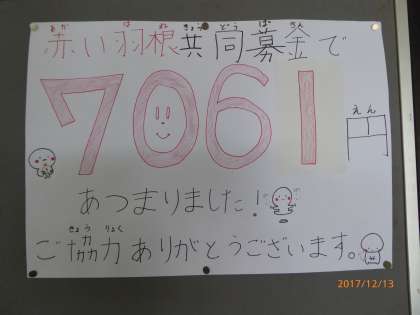 赤い羽根共同募金で
7061円
あつまりました!
ご協力ありがとうございます。
2017/12/13